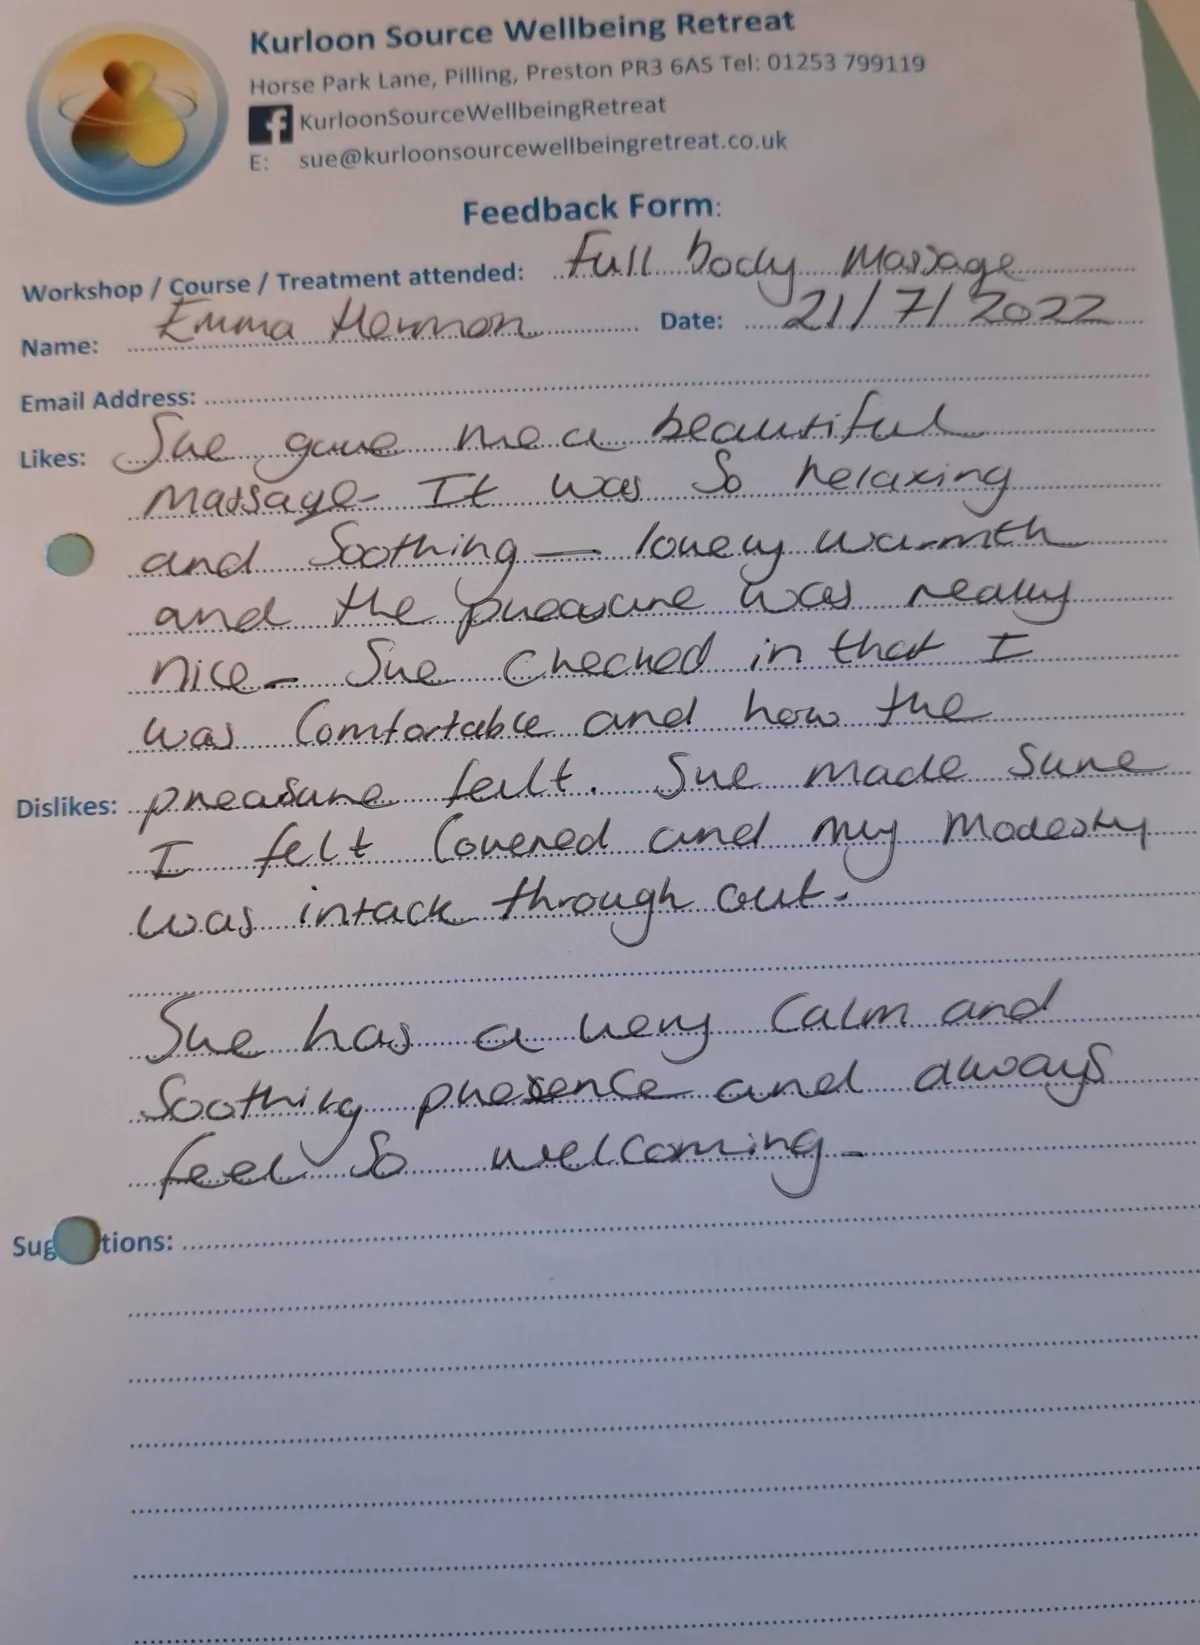 Kurloon Source Wellbeing Retreat
Horse Park Lane, Pilling, Preston PR3 6AS Tel: 01253 799119
f KurloonSourceWellbeingRetreat
E: sue@kurloonsourcewellbeingretreat.co.uk
Feedback Form:
Workshop / Course / Treatment attended: Full body Massage
Name: Emma Hermon Date: 21/7/2022
Email Address:
Likes: Sue gave me a beautiful
massage- It was so relaxing
and Soothing — lovely warmth
and the preasure was really
nice- Sue checked in that I
was Comfortable and how the
Dislikes: preasure felt. Sue made sure
I felt Covered and my Modesty
was intack through out.
Sue has a very Calm and
Soothing presence and always
feel So welcoming-
Sug tions: